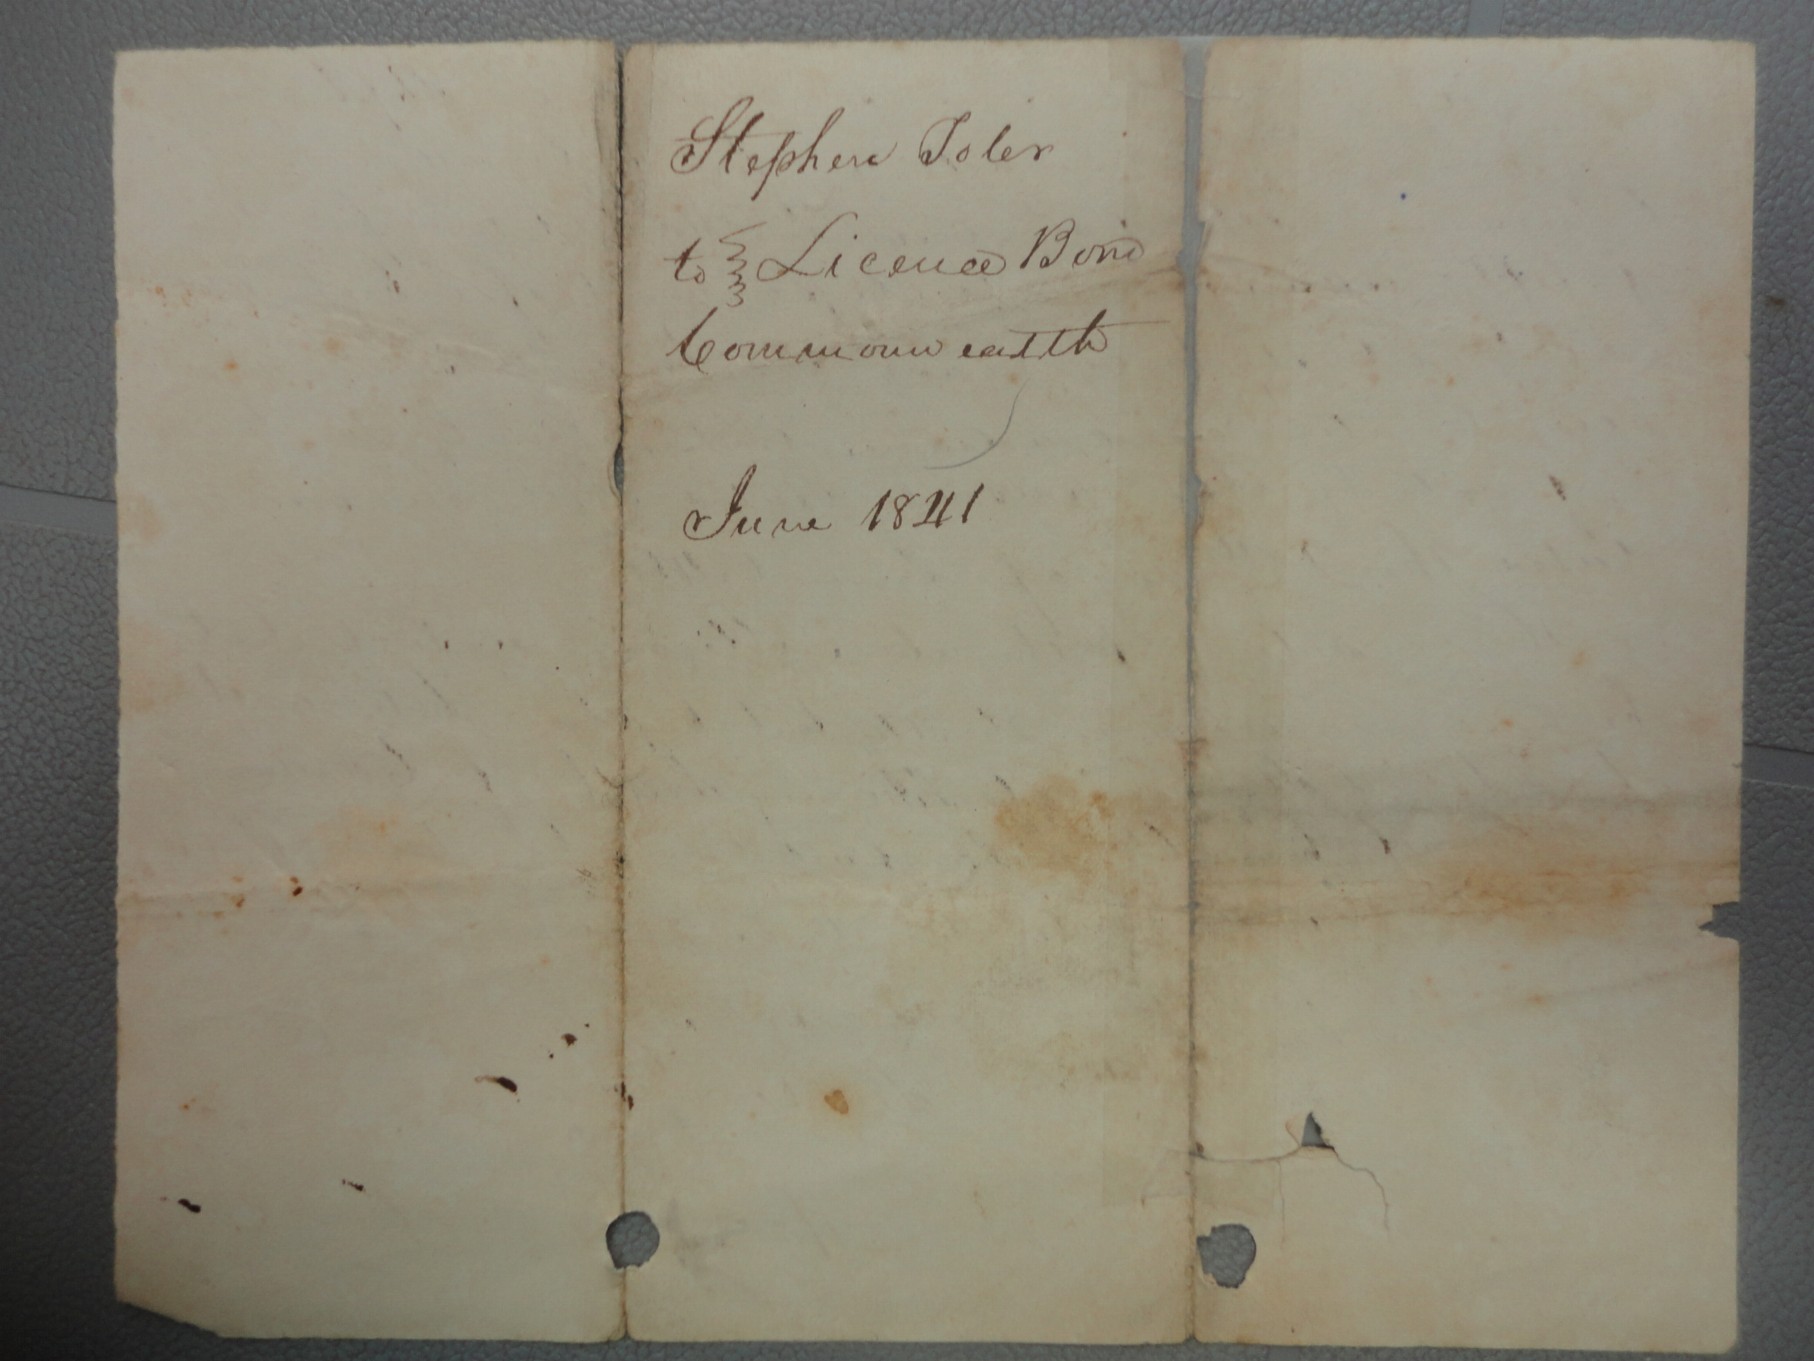 Stephen Toler
to Licence Bond
Commonwealth
June 1841